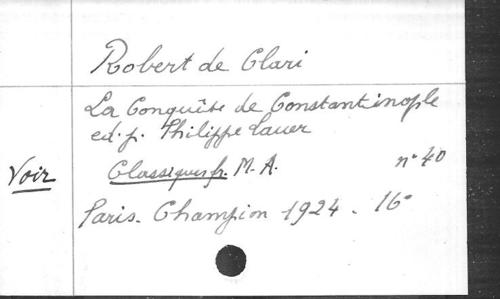 Robert de Clari
La Conquête de Constantinople
ed. p. Philippe Lauer
Voir Classiques fr. M. A. n° 40
Paris. Champion 1924. 16°